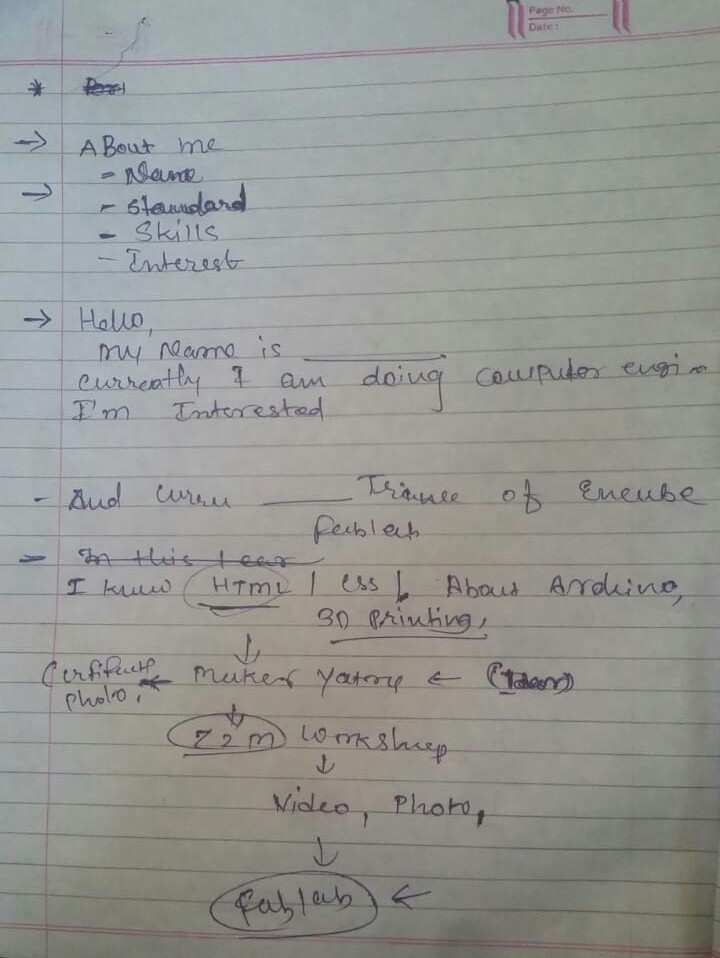 Page No.
Date:
*
→ ABout me
- Name
→ - Standard
- Skills
- Interest
→ Hello,
my Name is ________
currently I am doing computer engi
I'm Interested
- And curru ______ Trainee of Encube
fablab
- In this
I know HTML / CSS / About Arduino,
3D Printing,
↓
Certificate ← maker Yatra ←
photo,
↓
Z2M workshop
↓
Video, Photo,
↓
fablab ←